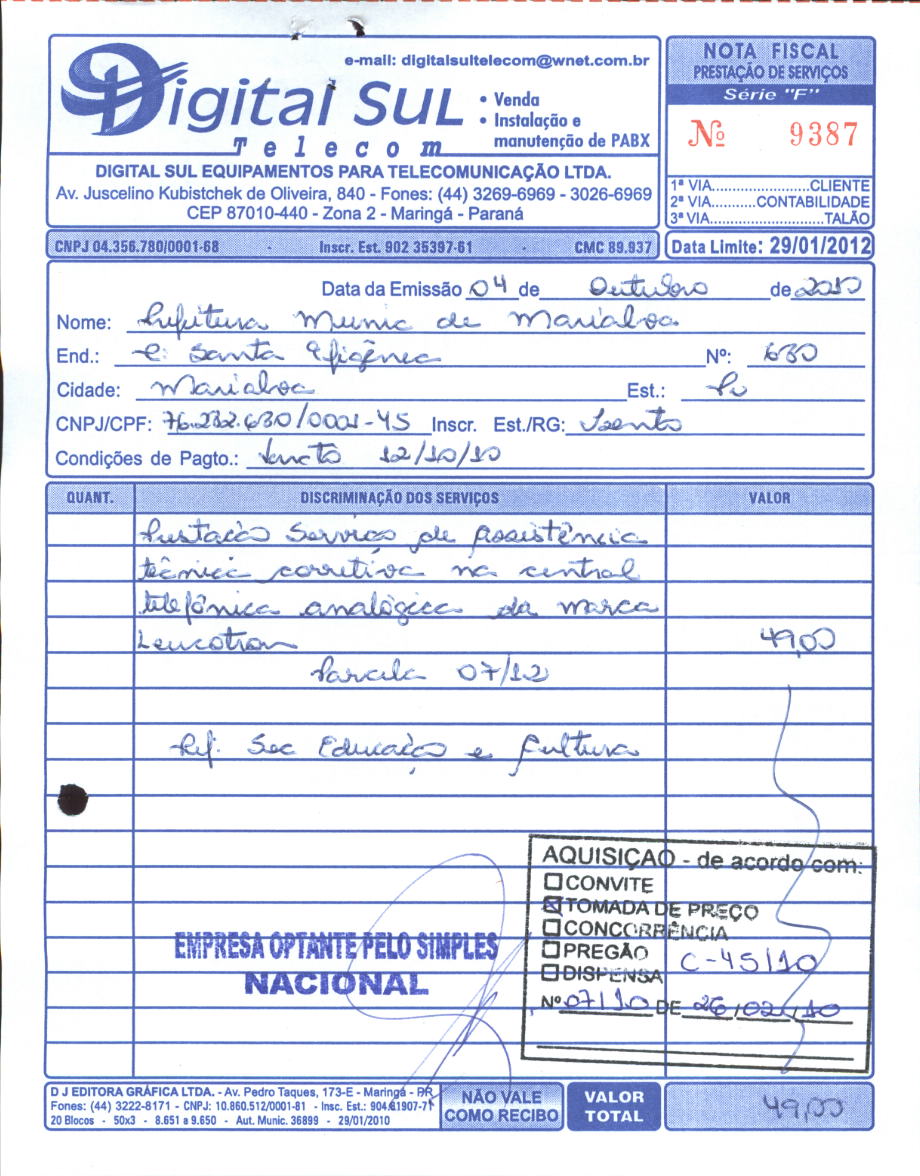 e-mail: digitalsultelecom@wnet.com.br
Digital Sul
Telecom
• Venda
• Instalação e
manutenção de PABX
DIGITAL SUL EQUIPAMENTOS PARA TELECOMUNICAÇÃO LTDA.
Av. Juscelino Kubistchek de Oliveira, 840 - Fones: (44) 3269-6969 - 3026-6969
CEP 87010-440 - Zona 2 - Maringá - Paraná
NOTA FISCAL
PRESTAÇÃO DE SERVIÇOS
Série "F"
Nº 9387
1ª VIA......................CLIENTE
2ª VIA..........CONTABILIDADE
3ª VIA.........................TALÃO
CNPJ 04.356.780/0001-68 - Inscr. Est. 902 35397-61 - CMC 89.937
Data Limite: 29/01/2012
Data da Emissão 04 de Outubro de 2010
Nome: Prefeitura Munic de Marialva
End.: R: Santa Efigênia Nº: 680
Cidade: Marialva Est.: Pr
CNPJ/CPF: 76.282.680/0001-45 Inscr. Est./RG: Isento
Condições de Pagto.: Vencto 12/10/10
QUANT. DISCRIMINAÇÃO DOS SERVIÇOS VALOR
Prestação Serviço de Assistência
técnica corretiva na central
telefônica analógica da marca
Leucotron 49,00
Parcela 07/12
Ref. Sec Educação e Cultura
AQUISIÇAO - de acordo com:
☐ CONVITE
☒ TOMADA DE PREÇO
☐ CONCORRÊNCIA
☐ PREGÃO
☐ DISPENSA C-45/10
Nº 07/10 DE 26/02/10
EMPRESA OPTANTE PELO SIMPLES
NACIONAL
D J EDITORA GRÁFICA LTDA. - Av. Pedro Taques, 173-E - Maringá - PR
Fones: (44) 3222-8171 - CNPJ: 10.860.512/0001-81 - Insc. Est.: 904.61907-71
20 Blocos - 50x3 - 8.651 a 9.650 - Aut. Munic. 36899 - 29/01/2010
NÃO VALE
COMO RECIBO
VALOR
TOTAL
49,00